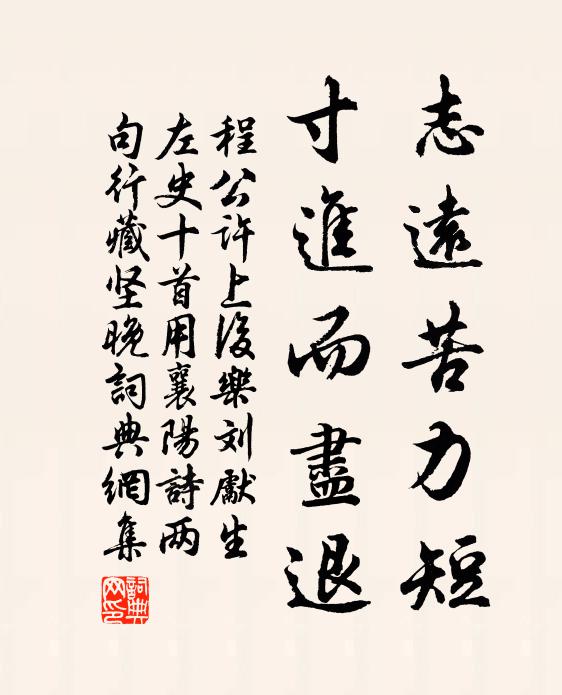 志遠苦力短
寸進而盡退
程公许上後樂刘獻生
左史十首用襄陽詩两
句行藏坚晚詞典網集
詞典网印